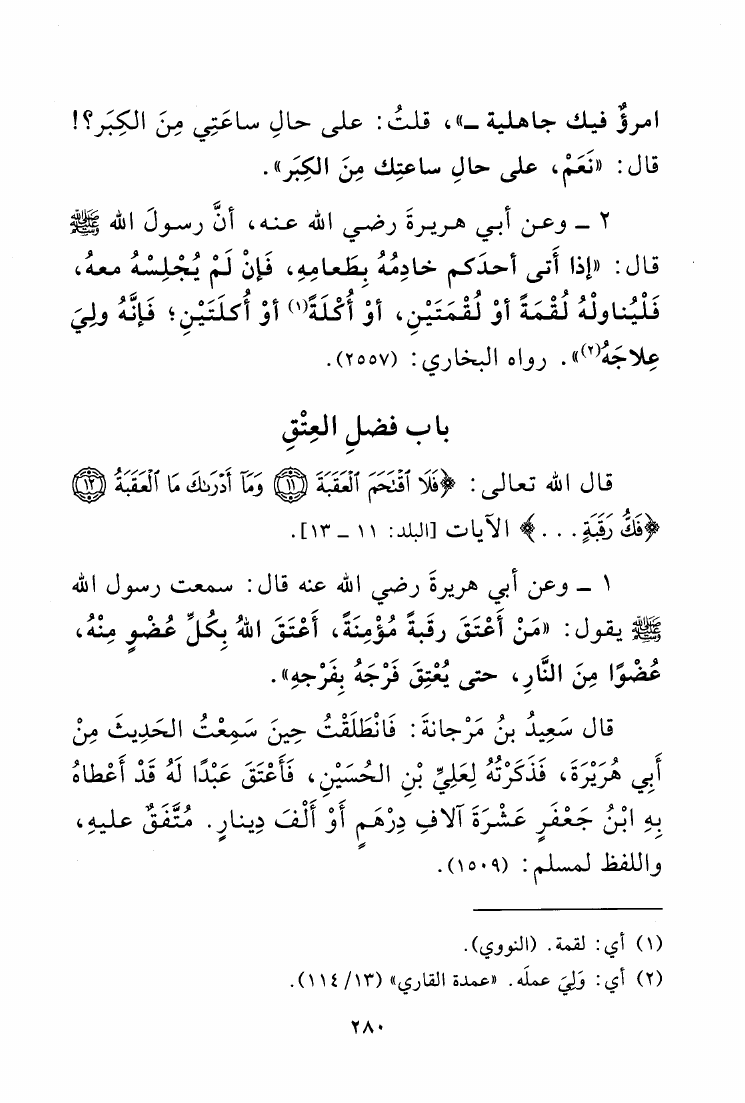 امرؤٌ فيك جاهلية ـ»، قلتُ: على حالِ ساعَتِي مِنَ الكِبَر؟!
قال: «نَعَمْ، على حالِ ساعتِك مِنَ الكِبَر».
٢ ـ وعن أبي هريرةَ رضي الله عنه، أنَّ رسولَ الله ﷺ
قال: «إذا أَتى أحدَكم خادِمُهُ بِطَعامِهِ، فَإنْ لَمْ يُجْلِسْهُ معهُ،
فَلْيُناوِلْهُ لُقْمَةً أوْ لُقْمَتَيْنِ، أوْ أُكْلَةً(١) أوْ أُكلَتَيْنِ؛ فَإنَّهُ ولِيَ
عِلاجَهُ(٢)». رواه البخاري: (٢٥٥٧).
باب فضلِ العِتْقِ
قال الله تعالى: ﴿فَلَا ٱقْتَحَمَ ٱلْعَقَبَةَ ۝١١ وَمَآ أَدْرَىٰكَ مَا ٱلْعَقَبَةُ ۝١٢
﴿فَكُّ رَقَبَةٍ...﴾ الآيات [البلد: ١١ ـ ١٣].
١ ـ وعن أبي هريرةَ رضي الله عنه قال: سمعت رسول الله
ﷺ يقول: «مَنْ أَعْتَقَ رقَبةً مُؤْمِنَةً، أَعْتَقَ اللهُ بِكُلِّ عُضْوٍ مِنْهُ،
عُضْوًا مِنَ النَّارِ، حتى يُعْتِقَ فَرْجَهُ بِفَرْجهِ».
قال سَعِيدُ بنُ مَرْجانةَ: فَانْطَلَقْتُ حِينَ سَمِعْتُ الحَدِيثَ مِنْ
أَبِي هُرَيْرَةَ، فَذَكَرْتُهُ لِعَلِيِّ بْنِ الحُسَيْنِ، فَأَعْتَقَ عَبْدًا لَهُ قَدْ أَعْطاهُ
بِهِ ابْنُ جَعْفَرٍ عَشْرَةَ آلافِ دِرْهَمٍ أَوْ أَلْفَ دِينارٍ. مُتَّفَقٌ عليهِ،
واللفظ لمسلم: (١٥٠٩).
(١) أي: لقمة. (النووي).
(٢) أي: وَلِيَ عملَه. «عمدة القاري» (١٣/ ١١٤).
٢٨٠